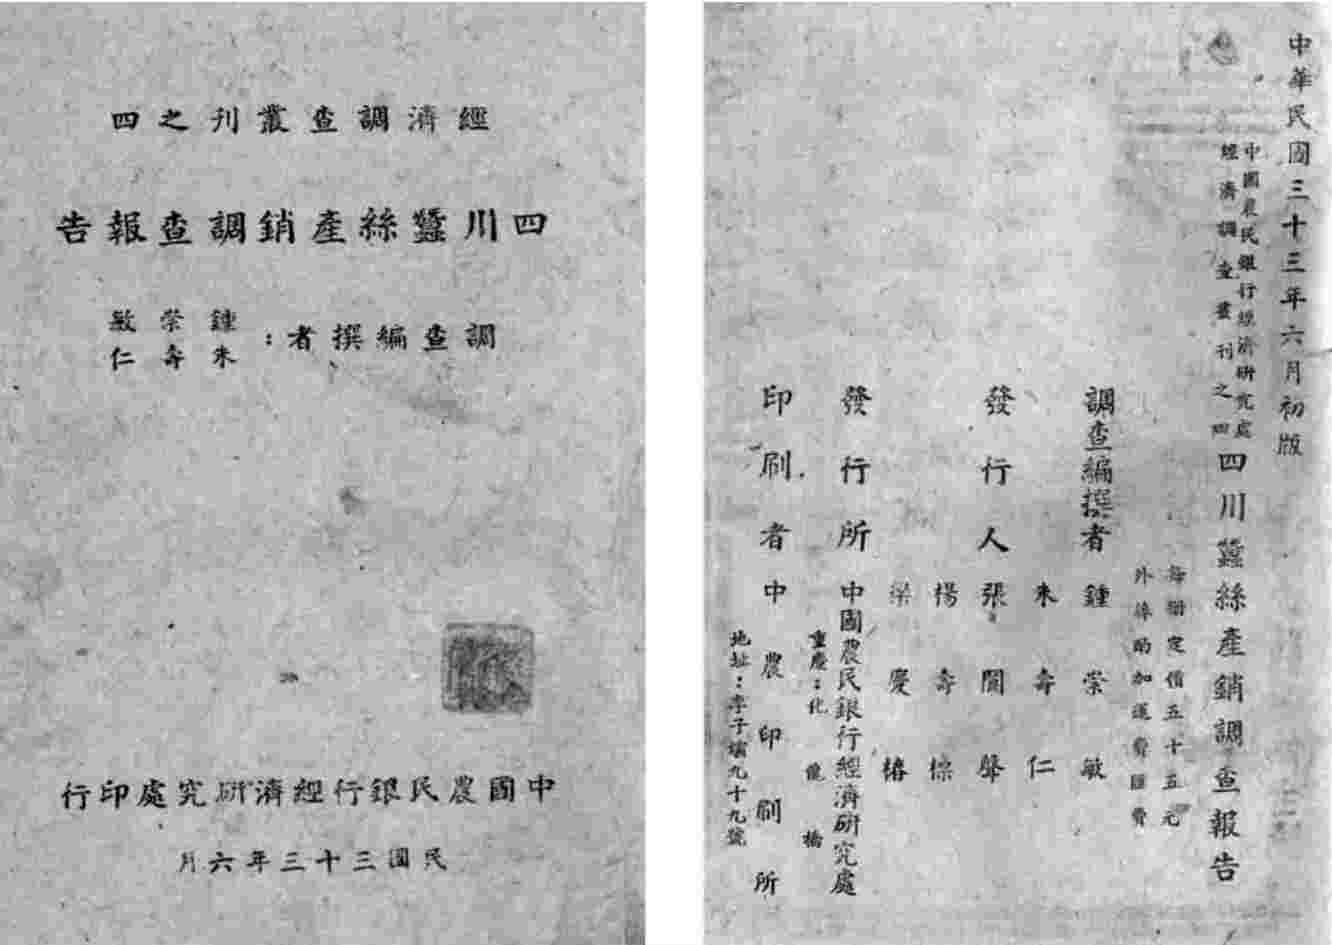 經濟調查叢刊之四
四川蠶絲產銷調查報告
調查編撰者：鍾崇敏
朱壽仁
中國農民銀行經濟研究處印行
民國三十三年六月
中華民國三十三年六月初版
中國農民銀行經濟研究處
經濟調查叢刊之四
四川蠶絲產銷調查報告
每冊定價五十五元
外埠酌加運費匯費
調查編撰者 鍾崇敏
朱壽仁
發行人 張閬聲
楊壽標
梁慶椿
發行所 中國農民銀行經濟研究處
重慶：化龍橋
印刷者 中農印刷所
地址：李子壩九十九號